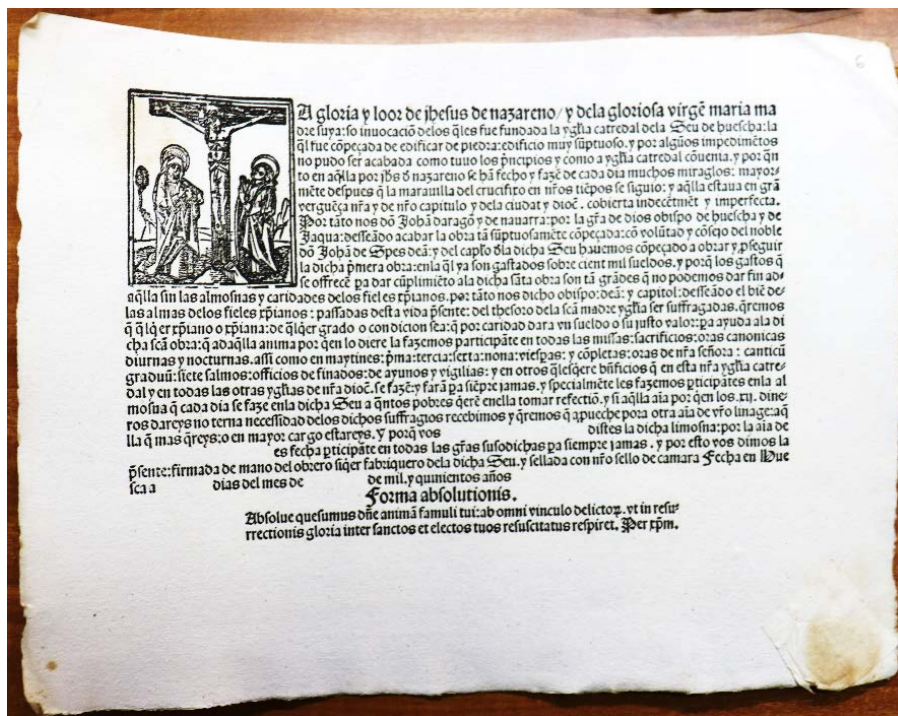 6
A gloria y loor de jhesus de nazareno/ y dela gloriosa virgẽ maria ma
dre suya: so inuocaciõ delos q̃les fue fundada la ygl̃ia catredal dela Seu de huescha: la
q̃l fue cõpeçada de edificar de piedra: edificio muy sũptuoso. y por algũos impedimẽtos
no pudo ser acabada como tuuo los p̃ncipios y como a ygl̃ia catredal cõuenta. y por q̃n
to en aq̃lla por jh̃s d̃ nazareno se hã fecho y fazẽ de cada dia muchos miraglos: mayor-
mẽte despues q̃ la marauilla del crucifixo en nr̃os tiẽpos se siguio: y aq̃lla estaua en grã
verguẽça nr̃a y de nr̃o capitulo y dela ciudat y dioc̃. cobierta indecẽtmẽt y imperfecta.
Por tãto nos dõ Johã daragõ y de nauarra: por la gr̃a de dios obispo de huescha y de
Jaqua: desseãdo acabar la obra tã sũptuosamẽte cõpeçada: cõ volũtad y cõsejo del noble
dõ Johã de Spes deã: y del capl̃o d̃la dicha Seu hauemos cõpeçado a obrar y p̃seguir
la dicha p̃mera obra: enla q̃l ya son gastados sobre cient mil sueldos. y porq̃ los gastos q̃
se offrecẽ pa dar cũplimiẽto ala dicha sãta obra son tã grãdes q̃ no podemos dar fin ad-
aq̃lla sin las almosnas y caridades delos fieles xp̃ianos. por tãto nos dicho obispo: deã: y capitol: desseãdo el biẽ de-
las almas delos fieles xp̃ianos : passadas desta vida p̃sente: del thesoro dela scã madre ygl̃ia ser suffragadas. q̃remos
q̃ q̃lq̃er xp̃iano o xp̃iana: de q̃lq̃er grado o condicion sea: q̃ por caridad dara vn sueldo o su justo valor: pa ayuda ala di
cha scã obra: q̃ ad aq̃lla anima por q̃en lo diere la fazemos participãte en todas las missas: sacrificios: oras canonicas
diurnas y nocturnas. assi como en maytines: p̃ma: tercia: sexta: nona: viesp̃as: y cõpletas: oras de nr̃a señora : canticũ
graduũ: siete salmos: officios de finados: de ayunos y vigilias: y en otros q̃lesq̃ere bñficios q̃ en esta nr̃a ygl̃ia catre-
dal y en todas las otras ygl̃ias de nr̃a dioc̃. se fazẽ: y farã pa siẽpre jamas. y specialmẽte les fazemos p̃ticipãtes enla al
mosna q̃ cada dia se faze enla dicha Seu a q̃ntos pobres q̃erẽ enella tomar refectiõ. y si aq̃lla aĩa por q̃en los .xij. dine-
ros dareys no terna necessidad delos dichos suffragios recebimos y q̃remos q̃ ap̃ueche pora otra aĩa de vr̃o linage: aq̃
lla q̃ mas q̃reys: o en mayor cargo estareys. y porq̃ vos distes la dicha limosna: por la aĩa de
es fecha p̃ticipãte en todas las gr̃as susodichas pa siempre jamas . y por esto vos dimos la
p̃sente: firmada de mano del obrero siq̃er fabriquero dela dicha Seu. y sellada con nr̃o sello de camara Fecha en Hue
sca a dias del mes de de mil. y quinientos años
Forma absolutionis.
Absolue quesumus dñe animã famuli tui: ab omni vinculo delictoꝝ. vt in resu-
rrectionis gloria inter sanctos et electos tuos resuscitatus respiret. Per xp̃m.